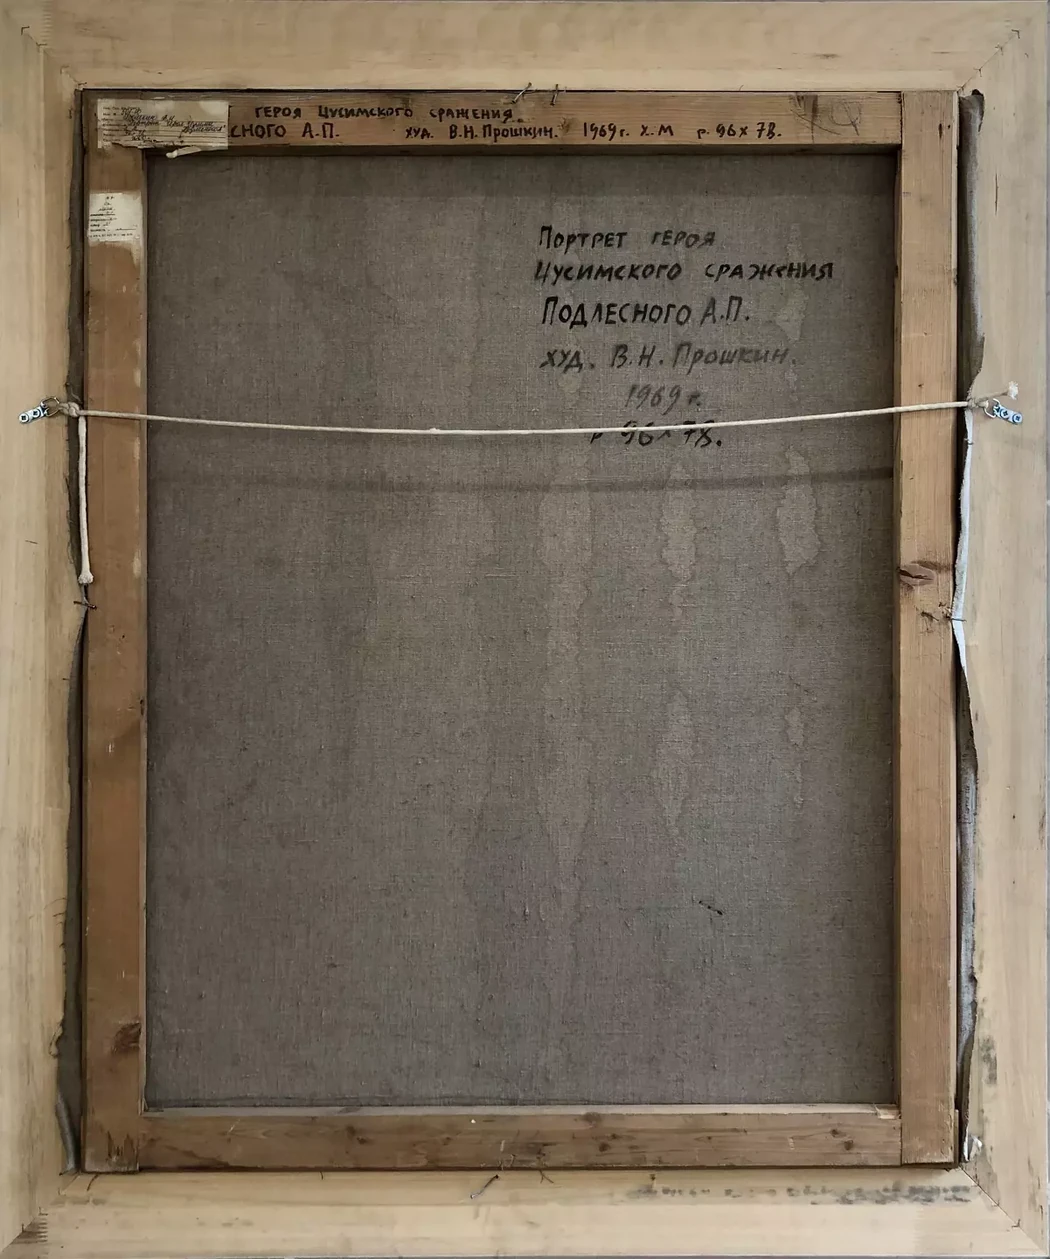 ГЕРОЯ ЦУСИМСКОГО СРАЖЕНИЯ.
СНОГО А.П. ХУД. В.Н. Прошкин. 1969 г. Х.М р. 96 х 78.
Портрет героя
Цусимского сражения
Подлесного А.П.
худ. В.Н. Прошкин.
1969 г.
р 96 х 78.